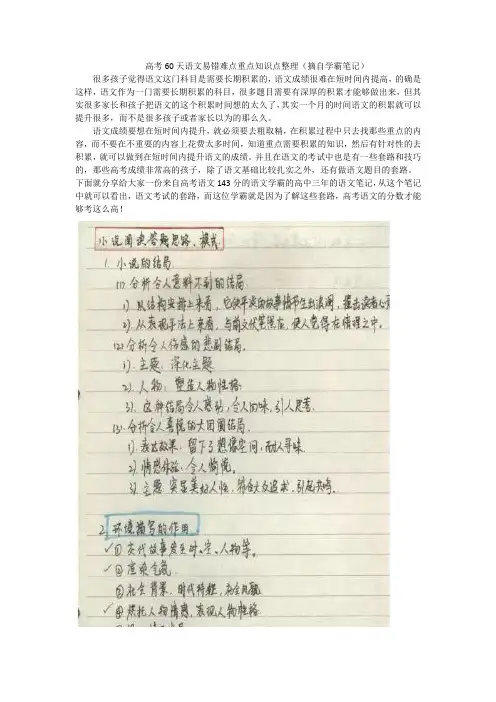 高考60天语文易错难点重点知识点整理（摘自学霸笔记）
很多孩子觉得语文这门科目是需要长期积累的，语文成绩很难在短时间内提高，的确是
这样，语文作为一门需要长期积累的科目，很多题目需要有深厚的积累才能够做出来，但其
实很多家长和孩子把语文的这个积累时间想的太久了，其实一个月的时间语文的积累就可以
提升很多，而不是很多孩子或者家长以为的那么久。
语文成绩要想在短时间内提升，就必须要去粗取精，在积累过程中只去找那些重点的内
容，而不要在不重要的内容上花费太多时间，知道重点需要积累的知识，然后有针对性的去
积累，就可以做到在短时间内提升语文的成绩。并且在语文的考试中也是有一些套路和技巧
的，那些高考成绩非常高的孩子，除了语文基础比较扎实之外，还有做语文题目的套路。
下面就分享给大家一份来自高考语文143分的语文学霸的高中三年的语文笔记，从这个笔记
中就可以看出，语文考试的套路，而这位学霸就是因为了解这些套路，高考语文的分数才能
够考这么高！
小说阅读答题思路、模式
1. 小说的结局
(1) 分析令人意料不到的结局
1) 从结构安排上来看，它使平淡的故事情节生出波澜，撞击读者心灵
2) 从表现手法上来看，与前文伏笔照应，使人觉得在情理之中。
(2) 分析令人伤感的悲剧结局。
1) 主题：深化主题
2) 人物：塑造人物性格
3) 这种结局令人感动，令人回味，引人思考.
(3) 分析令人喜悦的大团圆结局.
1) 表达效果：留下了想像空间，耐人寻味.
2) 情感体验：令人愉悦。
3) 主题：突显美好人性，符合大众追求，引起共鸣。
2. 环境描写的作用
✓① 交代故事发生时、空、人物等。
✓② 渲染气氛
③ 社会背景，时代特征，社会风貌
✓④ 烘托人物情感，表现人物性格